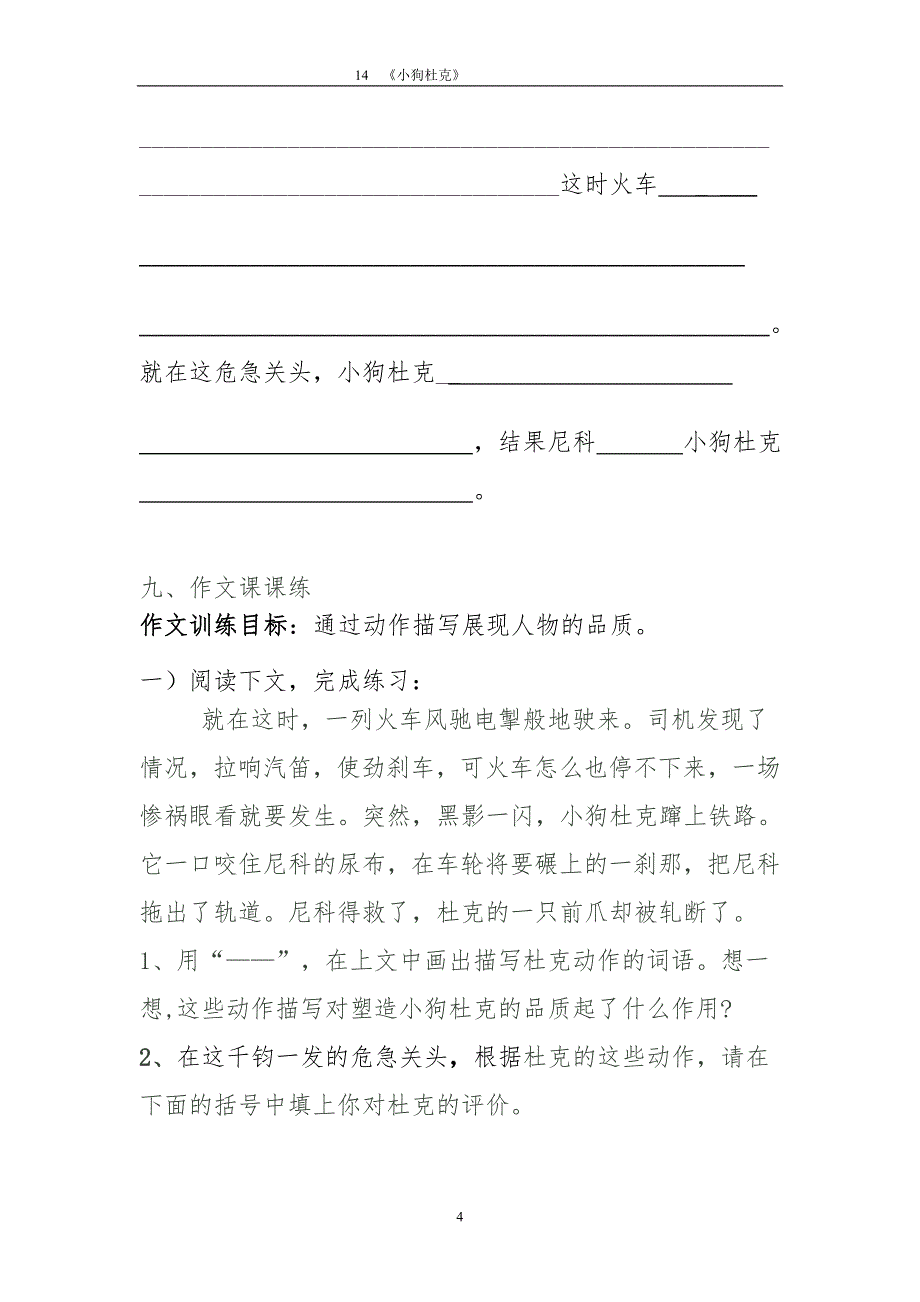 14 《小狗杜克》
___________________________________________________
__________________________________这时火车________
_________________________________________________
___________________________________________________。
就在这危急关头，小狗杜克________________________
___________________________，结果尼科_______小狗杜克
___________________________。
九、作文课课练
作文训练目标：通过动作描写展现人物的品质。
一）阅读下文，完成练习：
就在这时，一列火车风驰电掣般地驶来。司机发现了
情况，拉响汽笛，使劲刹车，可火车怎么也停不下来，一场
惨祸眼看就要发生。突然，黑影一闪，小狗杜克蹿上铁路。
它一口咬住尼科的尿布，在车轮将要碾上的一刹那，把尼科
拖出了轨道。尼科得救了，杜克的一只前爪却被轧断了。
1、用“——”，在上文中画出描写杜克动作的词语。想一
想,这些动作描写对塑造小狗杜克的品质起了什么作用?
2、在这千钧一发的危急关头，根据杜克的这些动作，请在
下面的括号中填上你对杜克的评价。
4